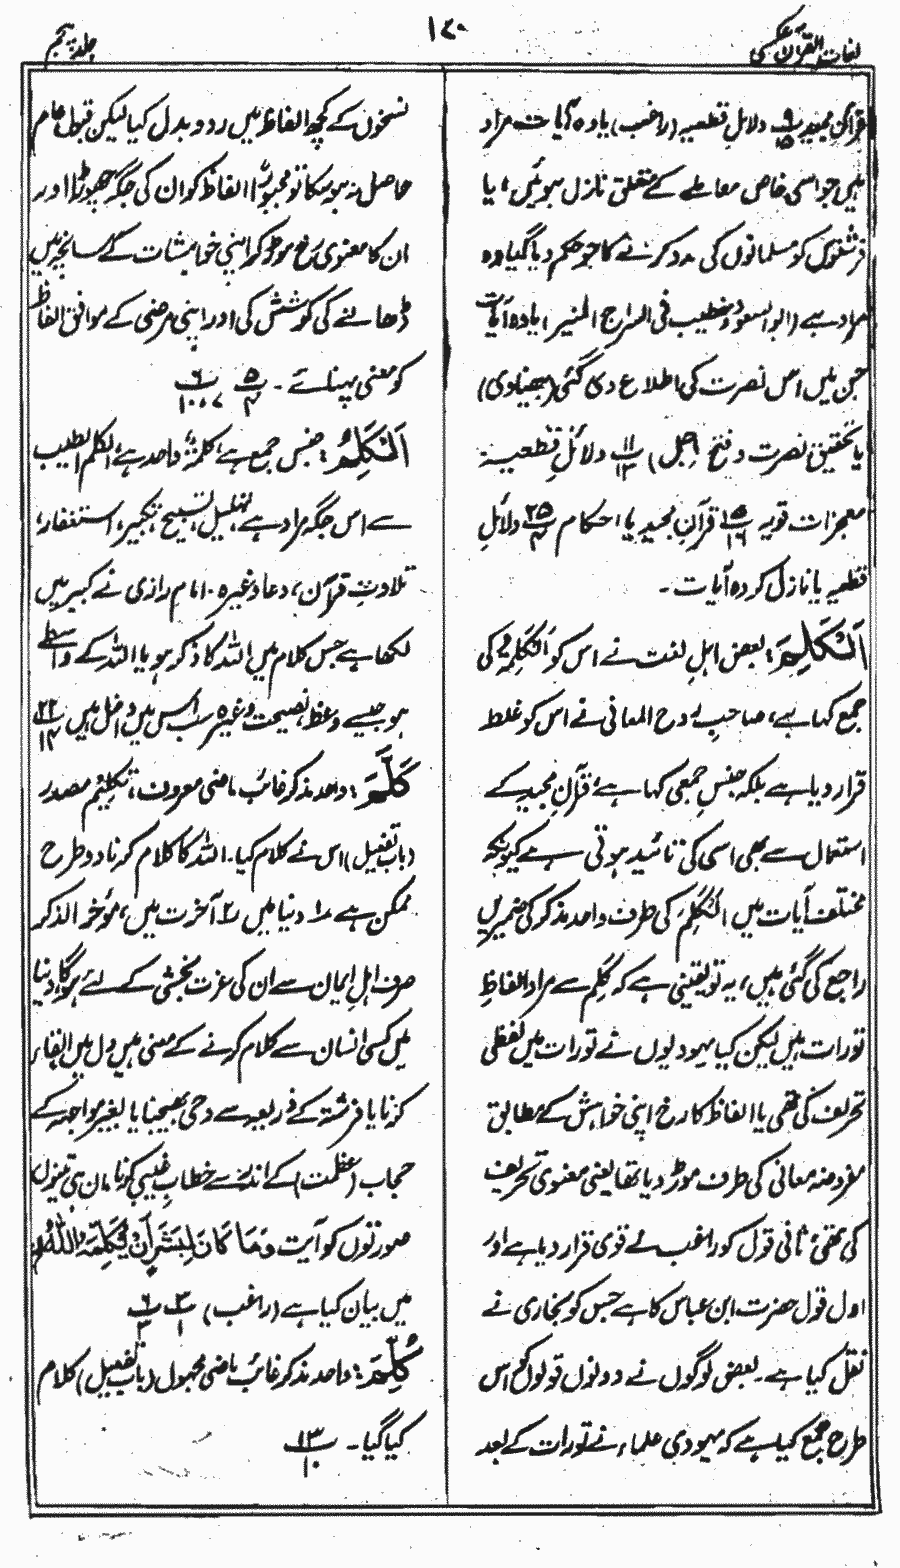 لغات القرآن عکسی
۱۲۰
جلد پنجم
قرآن مجید ۹ ۱۵ دلائلِ قطعیہ (راغب) یا وہ آیات مراد
ہیں جو اسی خاص معاملے کے متعلق نازل ہوئیں، یا
فرشتوں کو مسلمانوں کی مدد کرنے کا جو حکم دیا گیا وہ
مراد ہے (ابو السعود و خطیب فی السراج المنیر) یا وہ آیات
جن میں اس نصرت کی اطلاع دی گئی (بیضاوی)
یا تحقیق نصرت و فتح (جمل) ۱۱ ۱۲ دلائلِ قطعیہ
معجزات قویہ ۱۵ ۱۶ قرآنِ مجید یا احکام ۲۵ ۴ دلائلِ
قطعیہ یا نازل کردہ آیات۔
اَلْکَلِمَ: بعض اہلِ لغت نے اس کو اَلْکَلِمَۃ کی
جمع کہا ہے، صاحبِ روح المعانی نے اس کو غلط
قرار دیا ہے بلکہ جنسِ جمعی کہا ہے، قرآنِ مجید کے
استعمال سے بھی اسی کی تائید ہوتی ہے کیونکہ
مختلف آیات میں اَلْکَلِمَ کی طرف واحد مذکر کی ضمیریں
راجع کی گئی ہیں، یہ تو یقینی ہے کہ کَلِم سے مراد الفاظِ
تورات ہیں لیکن کیا یہودیوں نے تورات میں لفظی
تحریف کی تھی یا الفاظ کا رخ اپنی خواہش کے مطابق
مفروضہ معانی کی طرف موڑ دیا تھا یعنی معنوی تحریف
کی تھی، ثانی قول کو راغب نے قوی قرار دیا ہے اور
اول قول حضرت ابن عباس کا ہے جس کو بخاری نے
نقل کیا ہے۔ بعض لوگوں نے دونوں قولوں کو اس
طرح جمع کیا ہے کہ یہودی علماء نے تورات کے بعد
نسخوں کے کچھ الفاظ میں رد و بدل کیا لیکن قبول عام
حاصل نہ ہو سکا تو مجبوراً الفاظ کو ان کی جگہ چھوڑا اور
ان کا معنوی رخ موڑ کر اپنی خواہشات کے سانچہ میں
ڈھالنے کی کوشش کی اور اپنی مرضی کے موافق الفاظ
کو معنی پہنائے۔ ۵ ۴ ۶ ۱۰،۷
اَلْکَلِمُ: جنس جمع ہے، کلمۃ، واحد ہے، الکلم الطیب
سے اس جگہ مراد ہے، تہلیل، تسبیح، تکبیر، استغفار،
تلاوتِ قرآن، دعا وغیرہ۔ امام رازی نے کبیر میں
لکھا ہے جس کلام میں اللہ کا ذکر ہو یا اللہ کے واسطے
ہو جیسے وعظ، نصیحت وغیرہ سب اس میں داخل ہیں ۲۲ ۱۴
کَلَّمَ: واحد مذکر غائب ماضی معروف، تکلیم مصدر
(باب تفعیل) اس نے کلام کیا۔ اللہ کا کلام کرنا دو طرح
ممکن ہے ۱؎ دنیا میں ۲؎ آخرت میں، مؤخر الذکر
صرف اہلِ ایمان سے ان کی عزت بخشی کے لئے ہوگا، دنیا
میں کسی انسان سے کلام کرنے کے معنی ہیں دل میں القاء
کرنا یا فرشتہ کے ذریعہ سے وحی بھیجنا یا بغیر مواجہہ کے
حجاب (عظمت) کے اندر سے خطابِ غیبی کرنا، ان ہی تینوں
صورتوں کو آیت وَمَا کَانَ لِبَشَرٍ اَنْ یُّکَلِّمَہُ اللّٰہُ الخ
میں بیان کیا ہے (راغب) ۳ ۱ ۶ ۳
کُلِّمَ: واحد مذکر غائب ماضی مجہول (باب تفعیل) کلام
کیا گیا۔ ۱۳ ۱۰